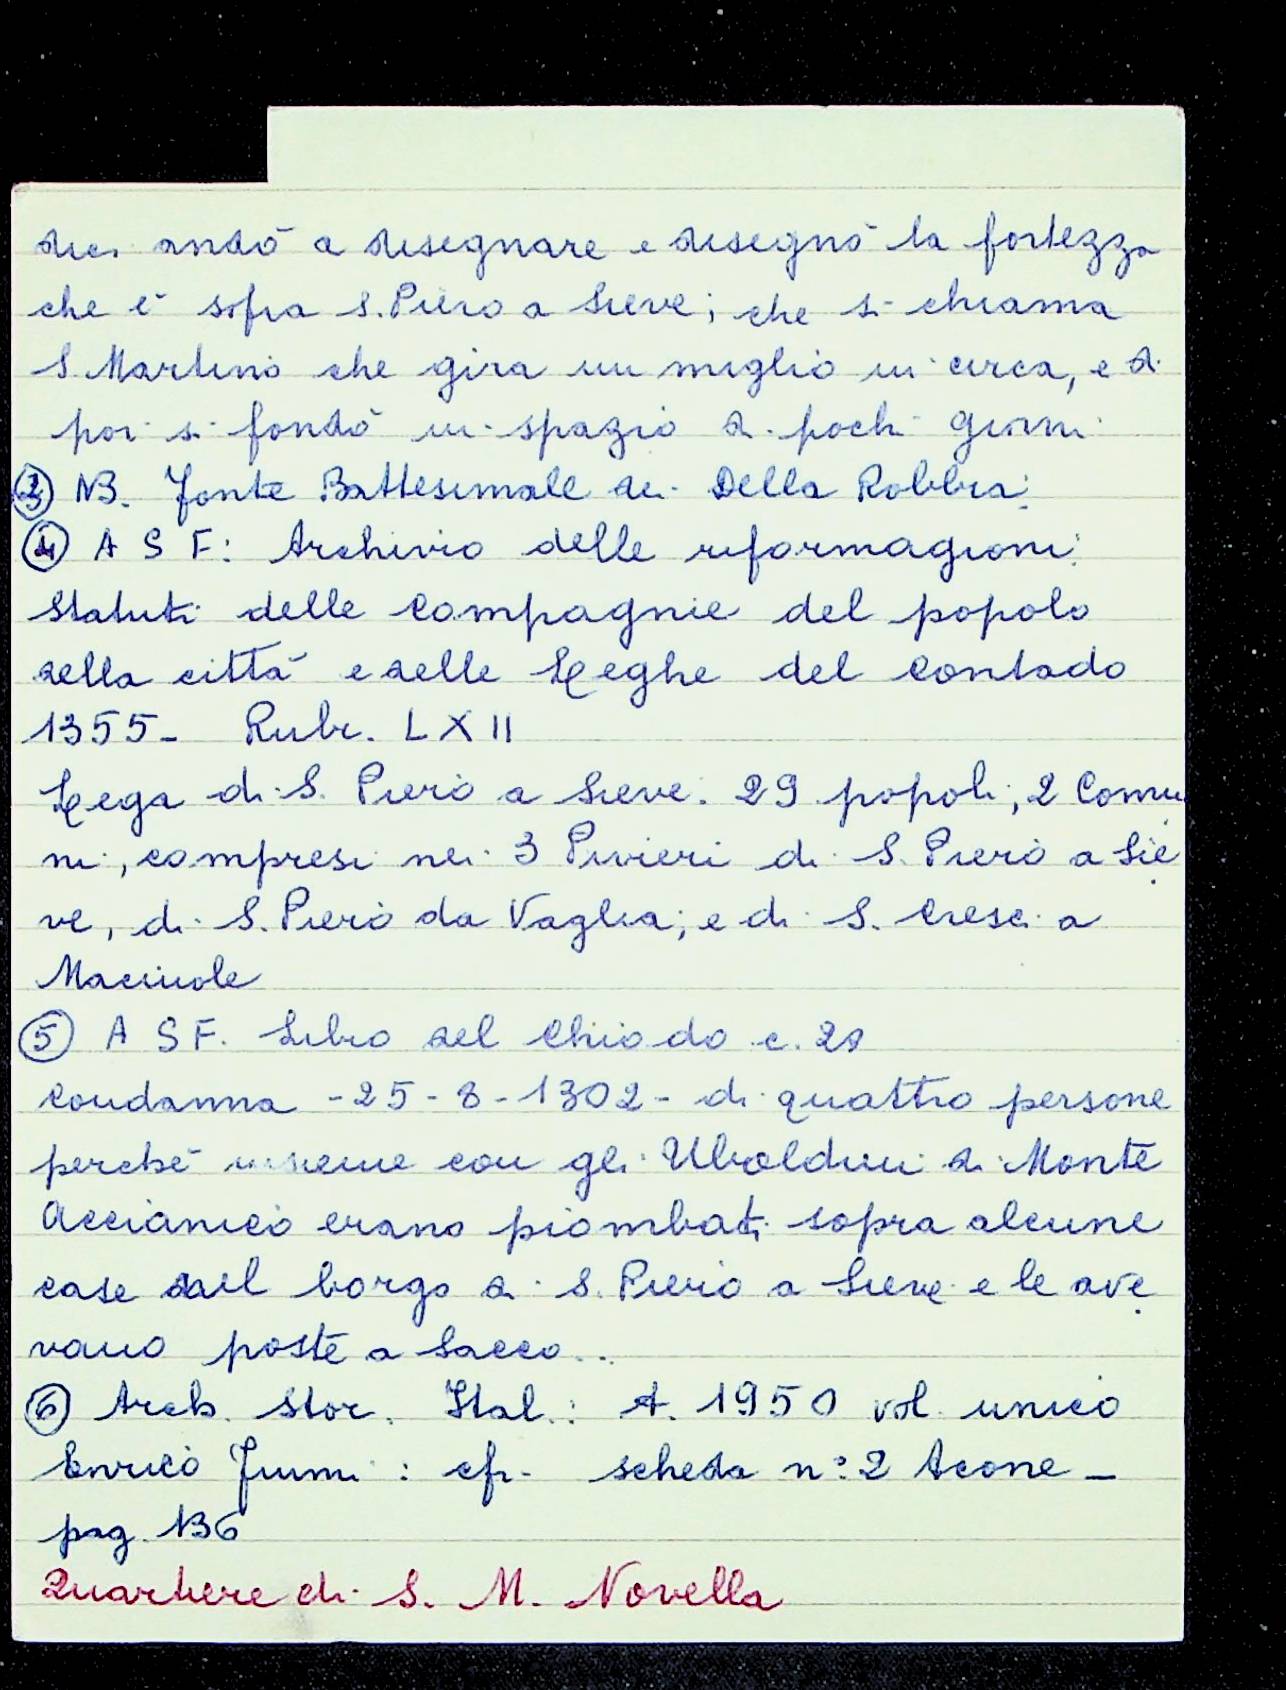 dici andò a disegnare e disegnò la fortezza
che è sopra S. Piero a Sieve; che si chiama
S. Martino che gira un miglio in circa, e di
poi si fondò in spazio di pochi giorni
③ NB. Fonte Battesimale dei Della Robbia
④ A S F: Archivio delle riformagioni
Statuti delle Compagnie del popolo
della città e delle Leghe del Contado
1355- Rubr. LXII
Lega di S. Piero a Sieve. 29 popoli, 2 Comu
ni, compresi nei 3 Pivieri di S. Piero a Sie
ve, di S. Piero da Vaglia, e di S. Cresci a
Macciuole
⑤ A S F. Libro del Chiodo c. 28
Condanna -25-8-1302- di quattro persone
perché insieme con gli Ubaldini di Monte
Accianico erano piombati sopra alcune
case del borgo di S. Piero a Sieve e le ave
vano poste a sacco..
⑥ Arch. Stor. Ital.: A. 1950 vol. unico
Enrico Fiumi: cfr. scheda n° 2 Acone -
pag. 136
Quartiere di S. M. Novella